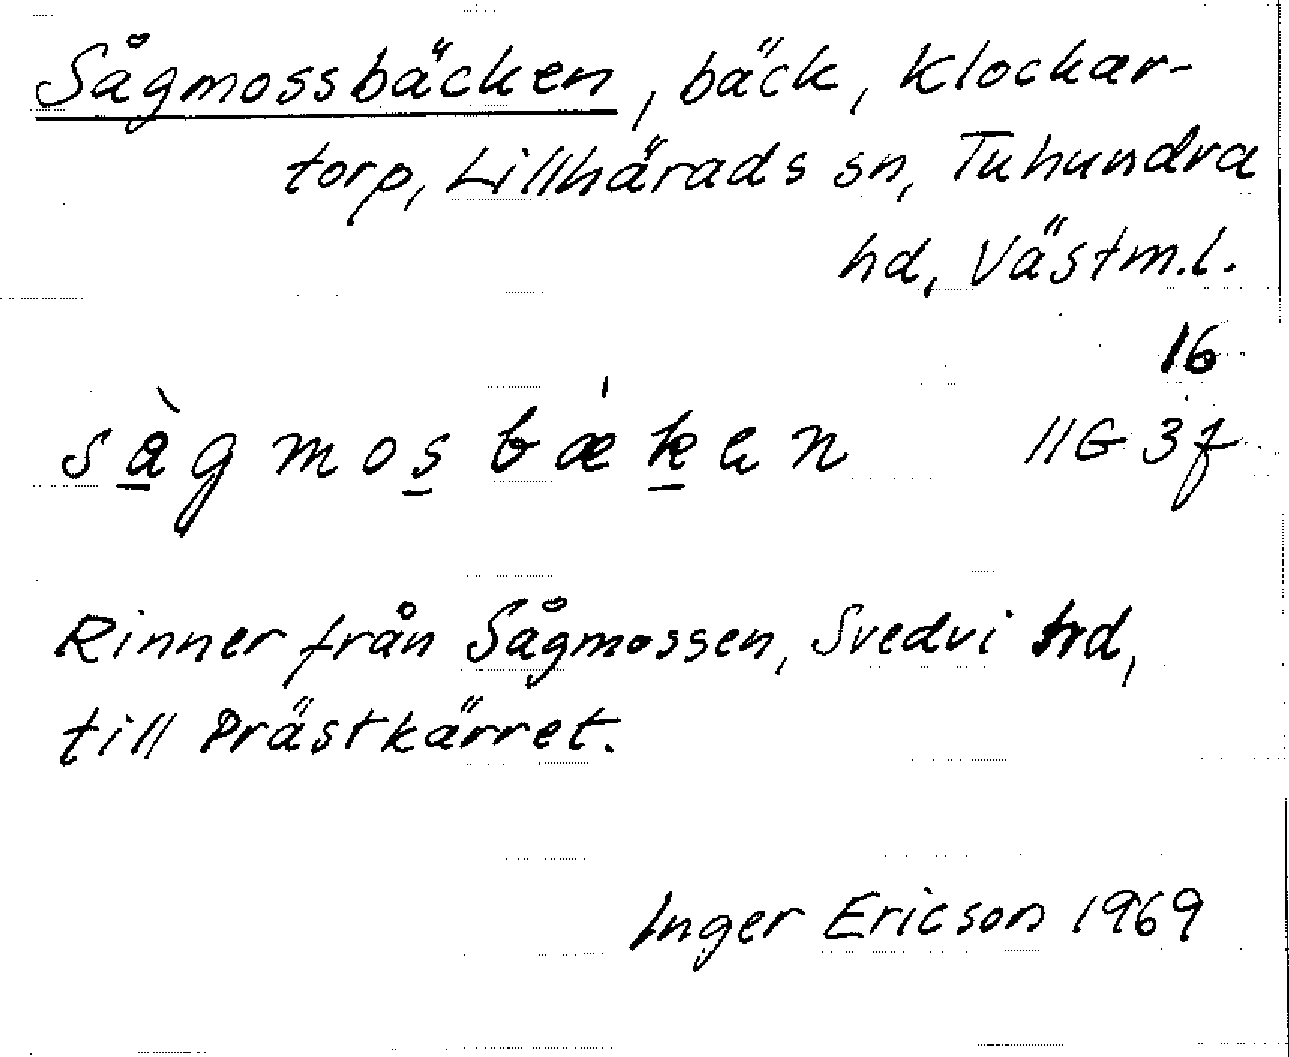 Sågmossbäcken, bäck, Klockar-
torp, Lillhärads sn, Tuhundra
hd, Västm.l.
16
sàgmosbǽkən 11G 3f
Rinner från Sågmossen, Svedvi hd,
till Prästkärret.
Inger Ericson 1969